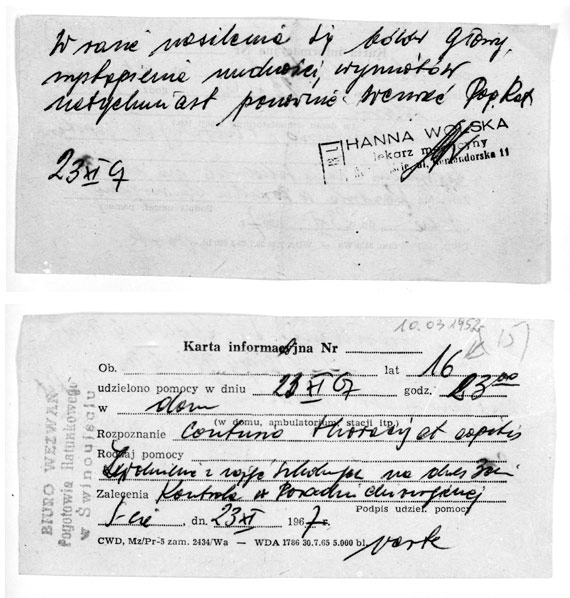 W razie nasilenia się bólów głowy,
wystąpienia nudności, wymiotów
natychmiast ponownie wezwać Pog. Rat
HANNA WOLSKA
lekarz medycyny
ul. Komandorska 11
23 XI 67
10.03 1952
15)
Karta informacyjna Nr
Ob. lat 16
udzielono pomocy w dniu 23 XI 67 godz. 23⁰⁰
w dom
(w domu, ambulatorium, stacji itp.)
Rozpoznanie Contusio thoracis et capitis
Rodzaj pomocy
Zwolnienie z zajęć szkolnych na dwa dni
Zalecenia Kontrola w Poradni chirurgicznej
Ś-cie, dn. 23 XI 1967 r.
Podpis udziel. pomocy
CWD, Mz/Pr-5 zam. 2434/Wa — WDA 1786 30.7.65 5.000 bl.
BIURO WEZWAŃ
Pogotowia Ratunkowego
w Świnoujściu